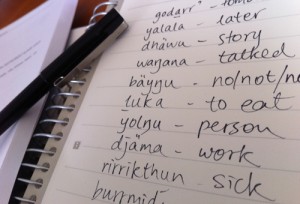 godarr - tomo
yalala - later
dhäwu - story
waŋana - talked
bäyŋu - no/not/n
ḻuka - to eat
yolŋu - person
djäma - work
rirrikthun - sick
burrmid